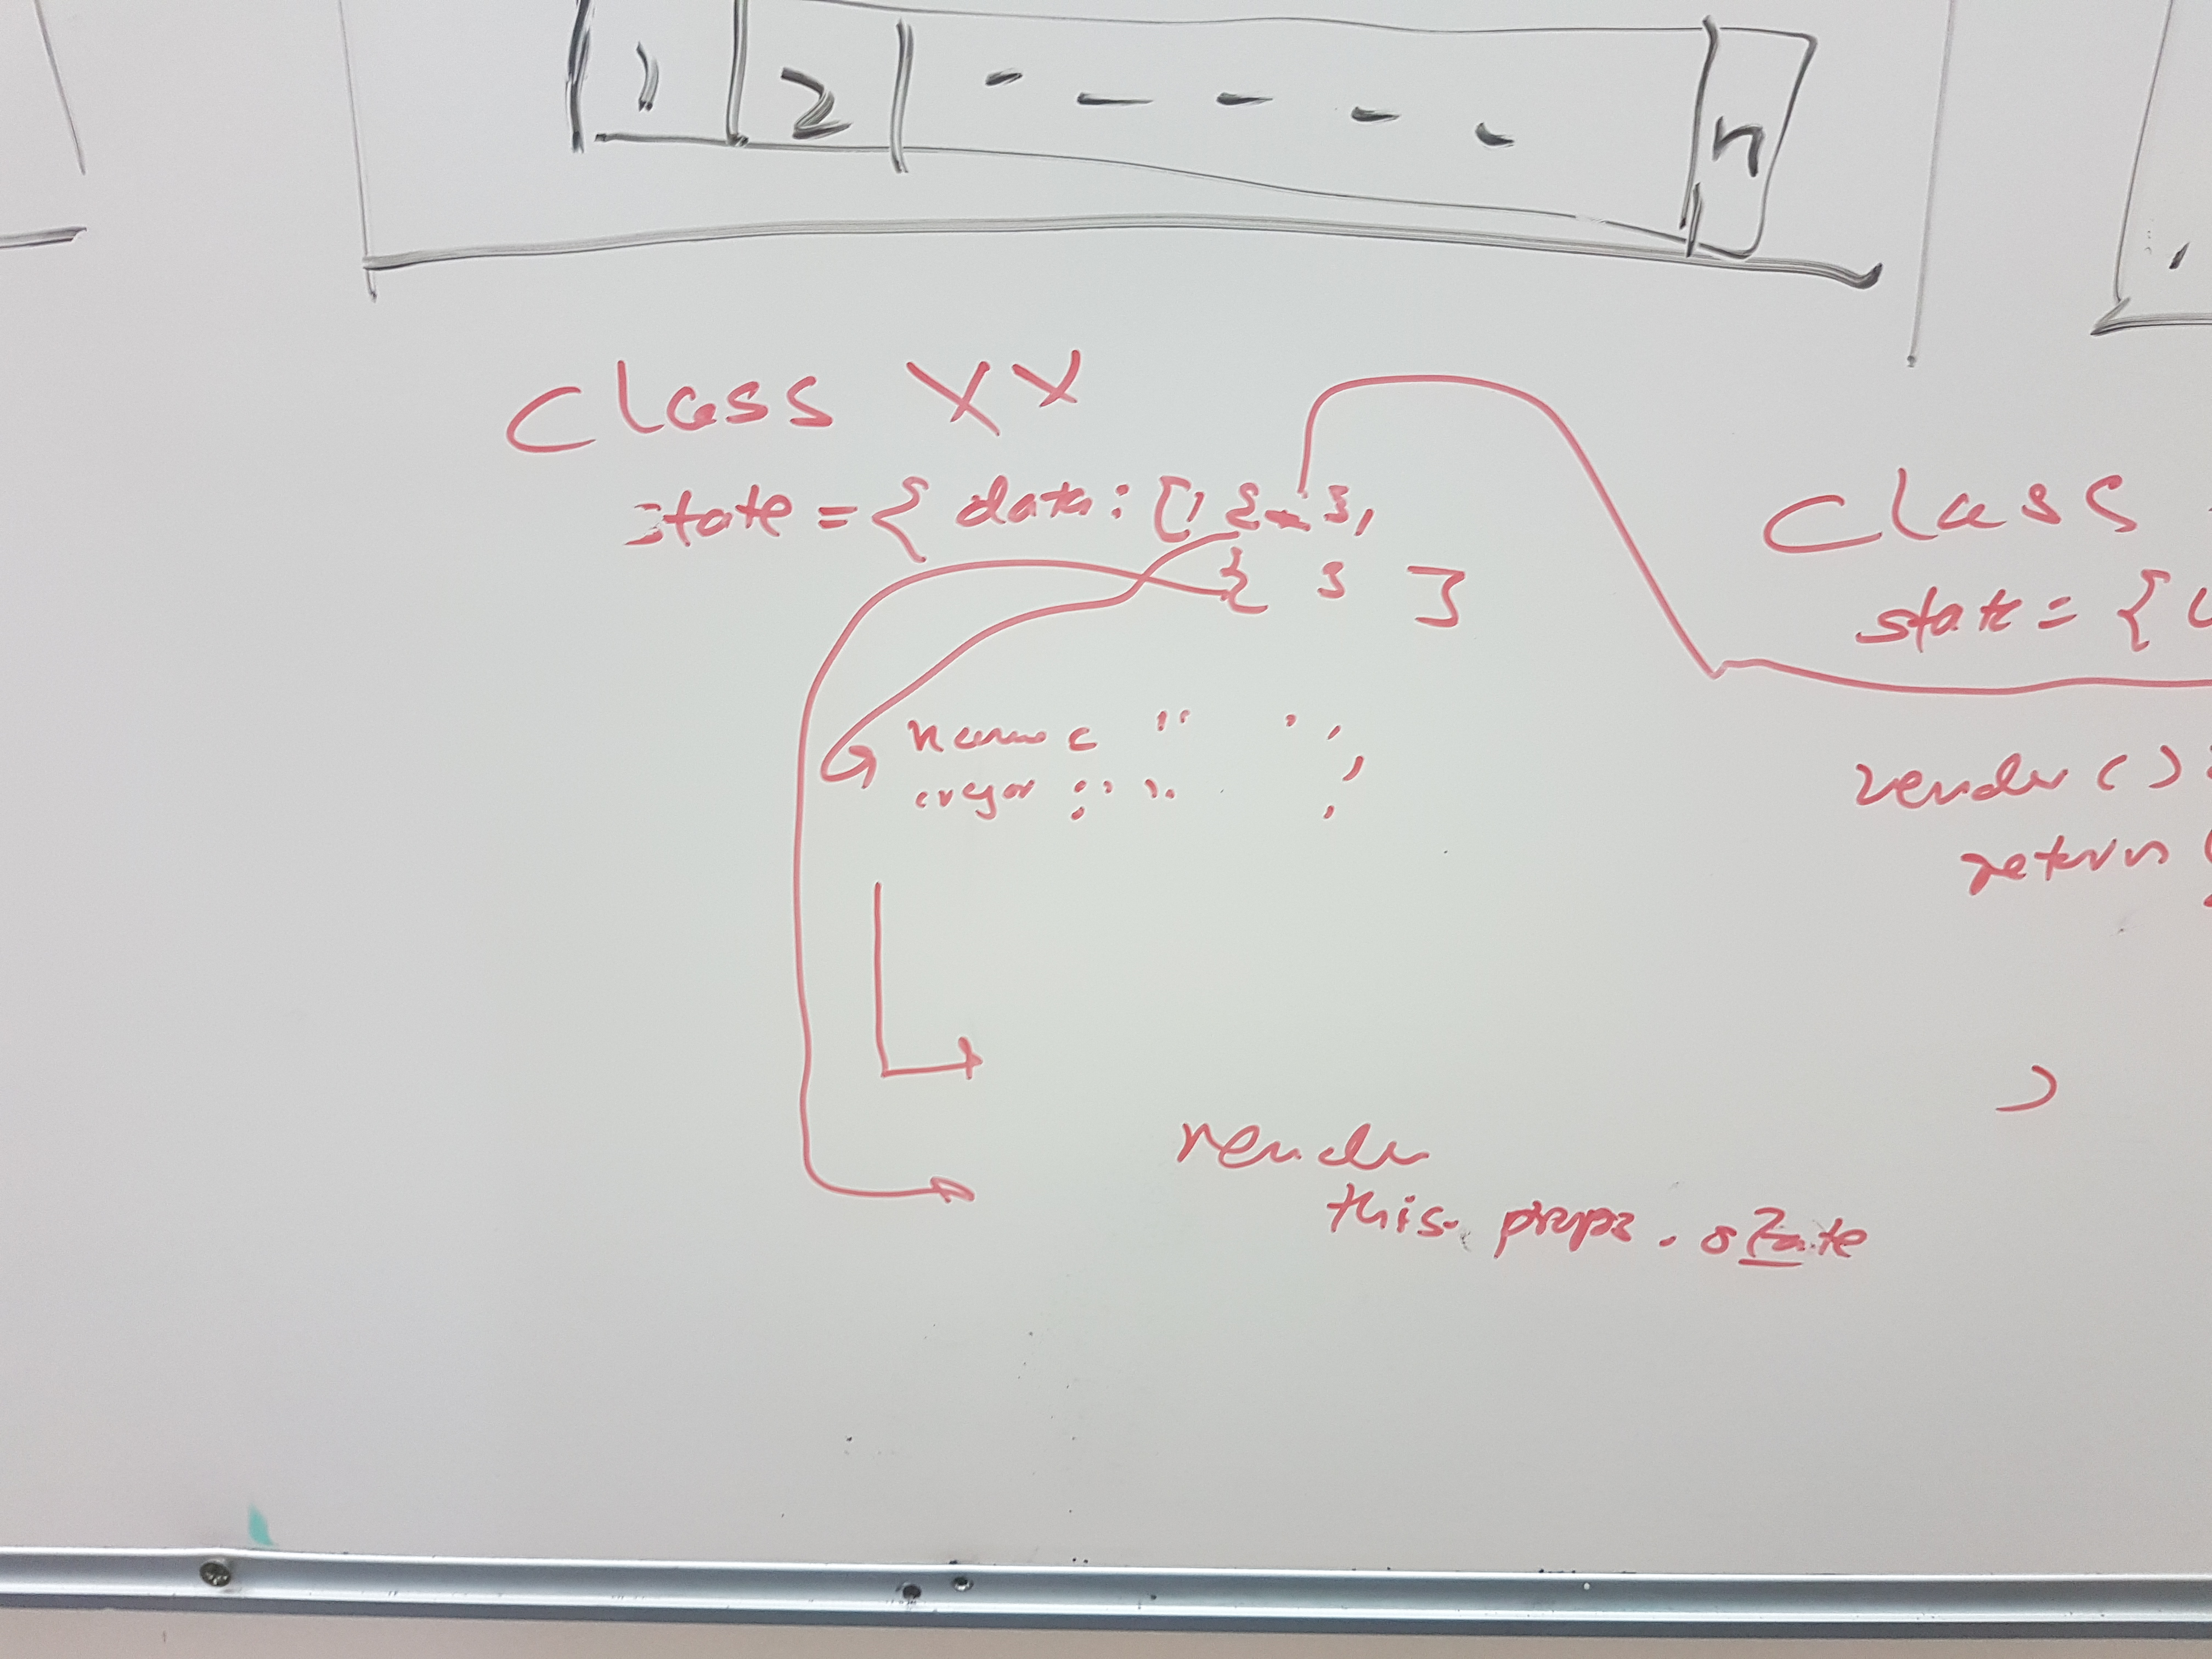 1 2 - - - - - n
class XX
state = { data: [, {-},
{ } ]
name : " " ,
: " " ,
render
this. props. state
class
state = {
render ( )
return (
)